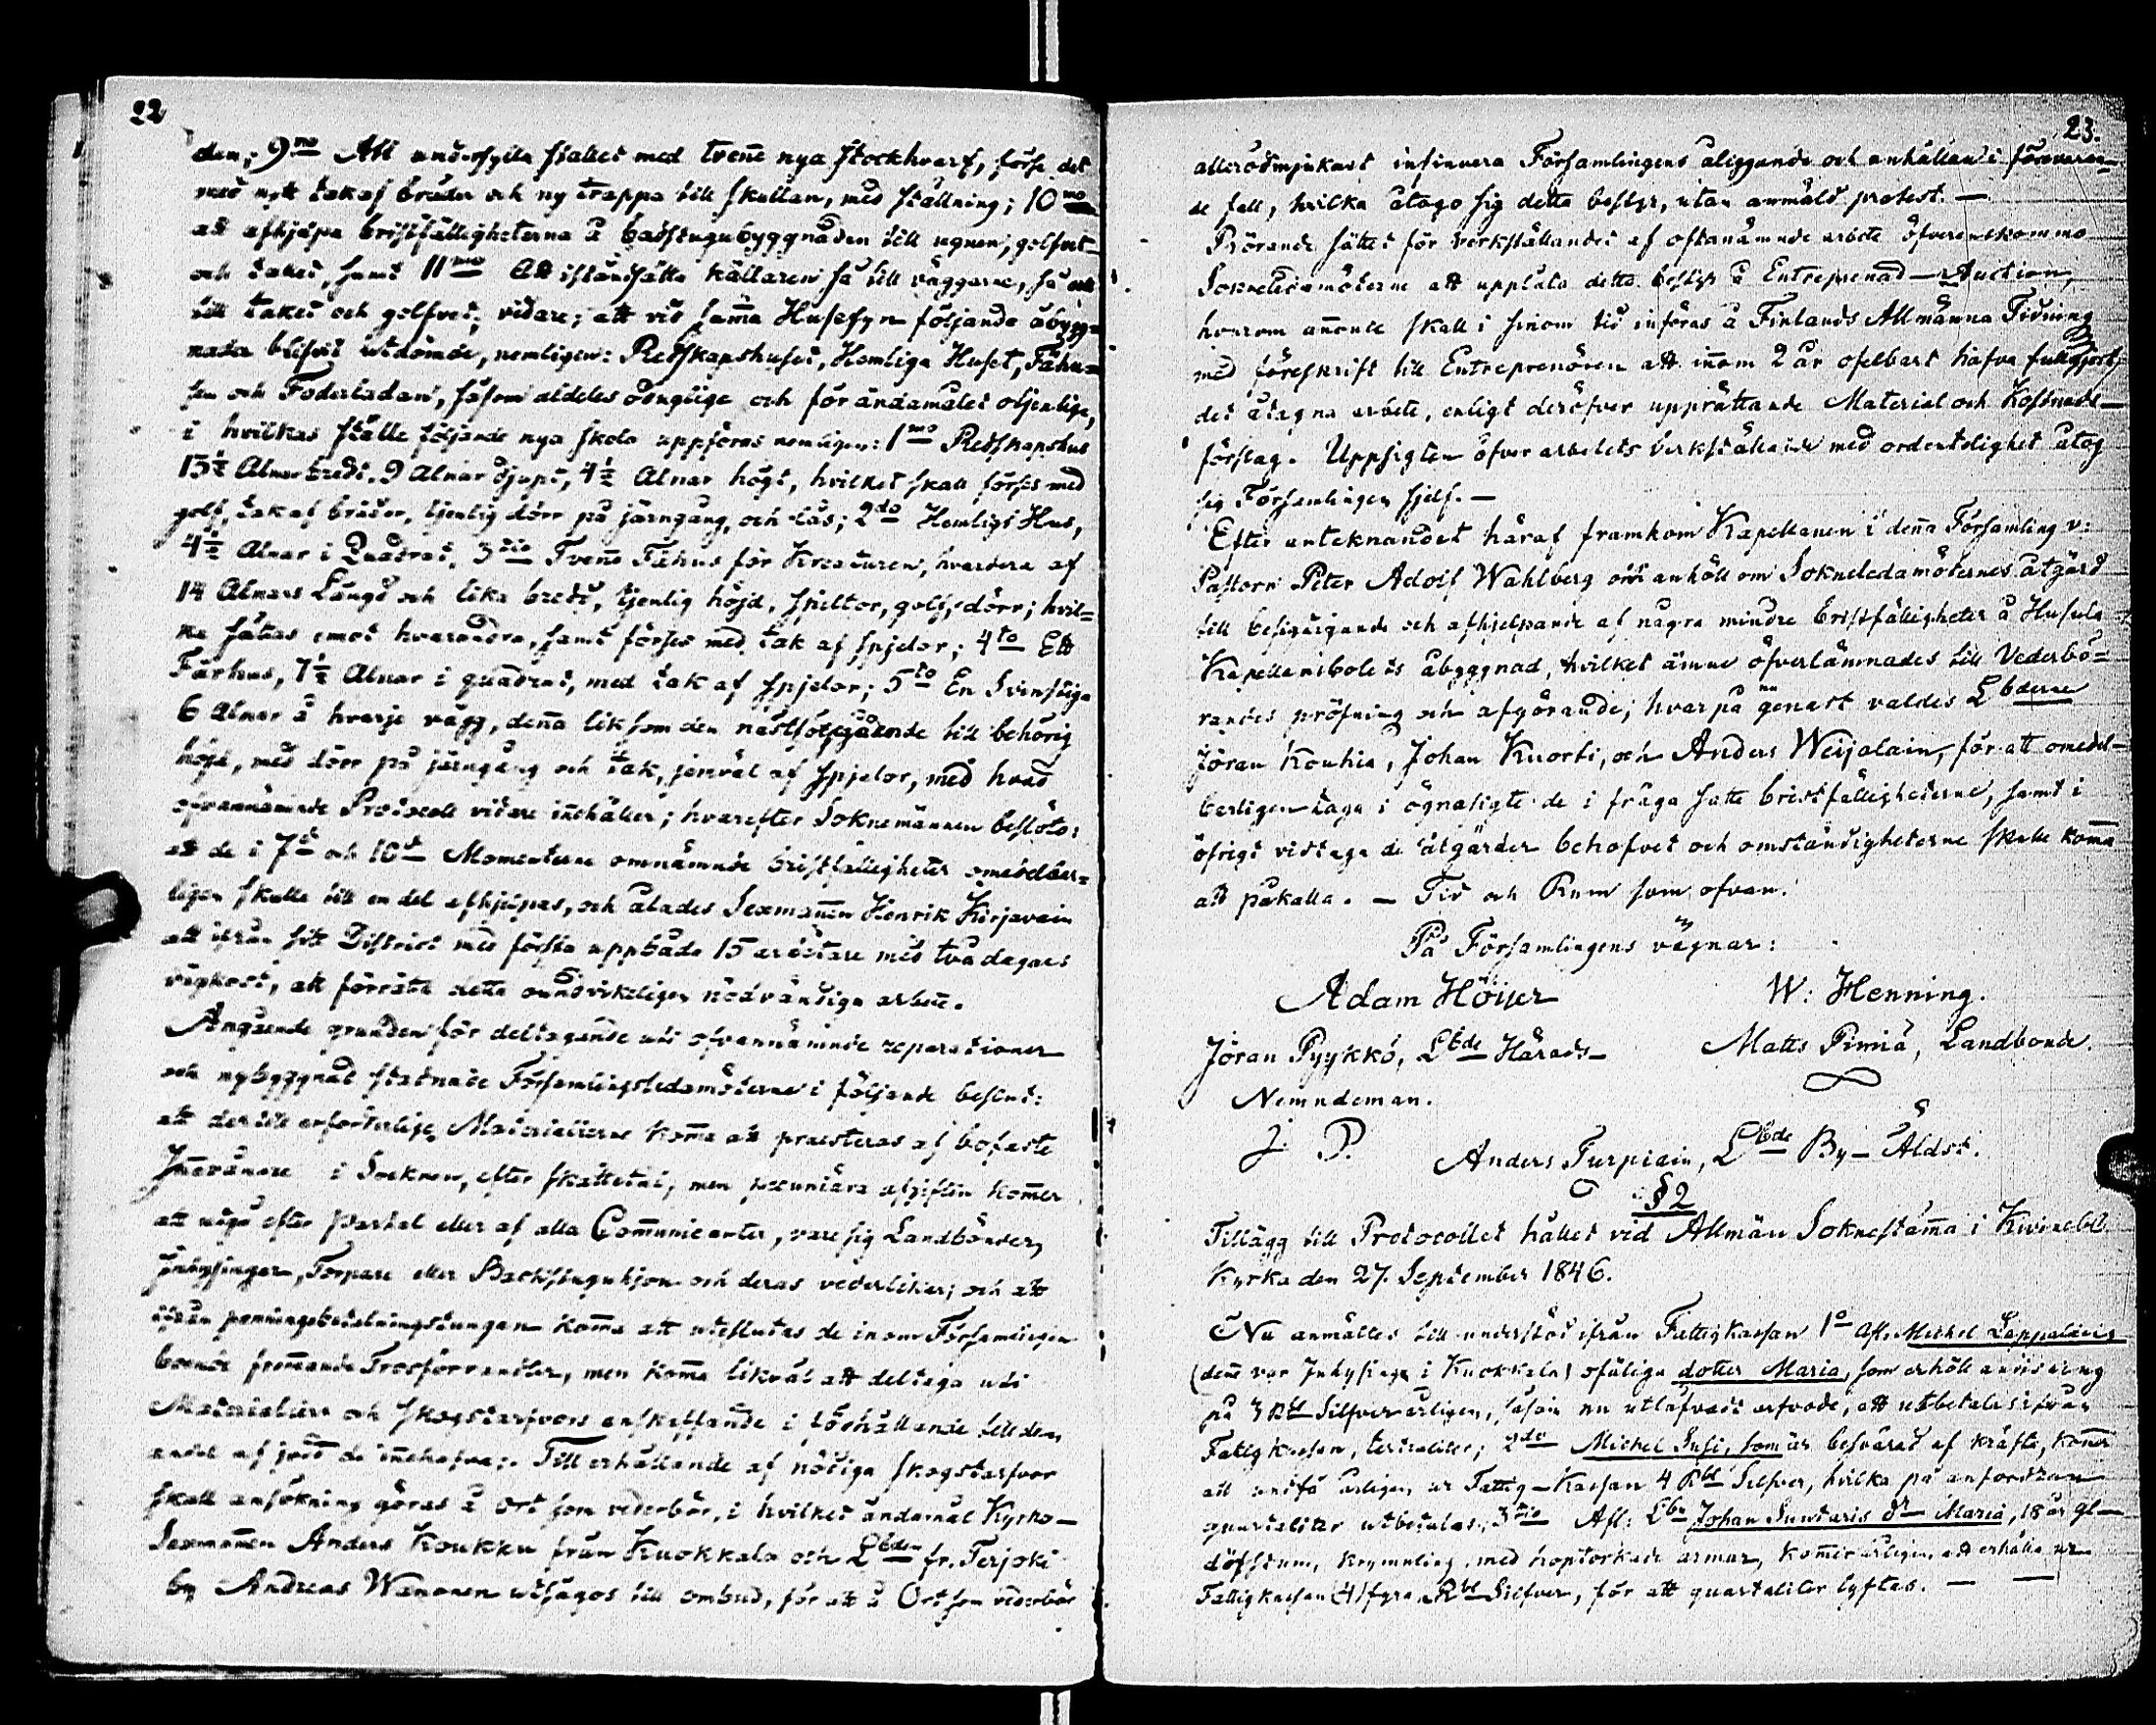 22
den; 9no Att undersylla stallet med trenne nya stockhvarf, förse det
med nytt tak af bräder och ny trappa till skullan, med ställning; 10mo
att afhjelpa bristfälligheterna å badstugubyggnaden till ugnen, golfvet
och taket, samt 11mo Att iståndsätta källaren så till väggarne, så ock
till taket och golfvet; vidare; att vid samma Husesyn följande åbygg-
nader blifvit utdömde, nemligen: Redskapshuset, Hemliga Huset, Fähu-
sen och Foderladan, såsom aldeles oduglige och för ändamålet otjenlige,
i hvilkas ställe följande nya skola uppföras nemligen: 1mo Redskapshus
15½ Alnar bredt, 9 Alnar djupt, 4½ Alnar högt, hvilket skall förses med
golf, tak af bräder, tjenlig dörr på järngång, och lås; 2do Hemligt Hus,
4½ Alnar i Quadrat, 3tio Tvenne Fähus för Kreaturen, hvardera af
14 Alnars Längd och lika bredt, tjenlig höjd, spiltor, golf, dörr; hvil-
ka sättas emot hvarandra, samt förses med tak af spjelor; 4to Ett
Fårhus, 7½ Alnar i quadrat, med tak af spjelor; 5to En Svinstiga
6 Alnar å hvarje vägg, denna liksom den nästföregående till behörig
höjd, med dörr på järngång och tak, jemväl af spjelor, med hvad
ofvannämnde Protocoll vidare innehåller; hvarefter Soknemännen beslöto:
att de i 7de och 10de Momenterne omnämnde bristfälligheter omedelbar-
ligen skulle till en del afhjelpas, och ålades Sexmannen Henrik Kirjavain
att ifrån sitt District med första uppbåda 15 arbetare med två dagars
vägkost, att förrätta detta oundvikeligen nödvändiga arbete.
Angående grunden för deltagande uti ofvannämnde reparationer
och nybyggnad stadnade Församlingsledamöterne i följande beslut:
att dertill erforderlige Materialierne komma att praesteras af bofaste
Innevånare i Socknen, efter skattetal, men pecuniära afgiften kommer
att utgå efter Partal eller af alla Communicanter, vare sig Landbönder,
Inhysingar, Torpare eller Backstuguhjon och deras vederlikar; och att
ifrån penningebetalningstungan komma att uteslutas de inom Församlingen
boende främmande Trosförvandter, men komma likväl att deltaga uti
Materialiers och skogstarfvors anskaffande i förhållande till den
andel af jord de innehafva. Till erhållande af nödiga skogstarfvor
skall ansökning göras å Ort som vederbör, i hvilket ändamål Kyrko-
Sexmannen Anders Koukku från Kuokkala och Lbden fr. Terjoki
by Andreas Wanonen utsågos till ombud, för att å Ort som vederbör
23.
allerödmjukast insinuera Församlingens åliggande och anhållan i förevaran-
de fall, hvilka åtogo sig detta bestyr, utan anmäld protest. —
Rörande sättet för verkställandet af oftanämnde arbete öfverenskommo
Sockneledamöterne att upplåta detta bestyr å Entreprenad-Auction,
hvarom annonce skall i sinom tid införas å Finlands Allmänna Tidning
med föreskrift till Entreprenören att innom 2 år ofelbart hafva fullgjort
det åtagna arbete, enligt deröfver upprättande Material och Kostnads-
förslag. Uppsigten öfver arbetets verkställande med ordentelighet åtog
sig Församlingen sjelf. —
Efter anteknandet häraf framkom Kapellanen i denna Församling v:
Pastorn Peter Adolf Wahlberg och anhöll om Sokneledamöternes åtgärd
till besigtigande och afhjelpande af några mindre bristfälligheter å Husula
Kapellansbolets åbyggnad, hvilket ämne öfverlämnades till Vederbö-
randes pröfning och afgörande; hvarpå genast valdes Lbderne
Jöran Kouhia, Johan Kuorti, och Anders Weijalain, för att omedel-
berligen taga i ögnasigte de i fråga satte bristfälligheterne, samt i
öfrigt vidtaga de åtgärder behofvet och omständigheterne skulle komma
att påkalla. — Tid och Rum som ofvan.
På Församlingens vägnar:
Adam Höijer W: Henning.
Jöran Pyykkö, Lbde Härads- Matts Pimiä, Landbonde.
Nemndeman.
J. P. Anders Turpiain, Lbde By-Äldst.
§ 2
Tillägg till Protocollet hållet vid Allmän Soknestämma i Kivinebb
Kyrka den 27. September 1846.
Nu anmältes till understöd ifrån Fattigkassan 1o Afl. Michel Lappalains
(denne var Inhysing i Kuokkala) ofärliga dotter Maria, som erhöll anvisning
på 3 Rbl Silfver årligen, såsom nu utlåfvadt arfvode, att utbetalas ifrån
Fattigkassan, tertialiter; 2do Michel Susi, som är besvärad af kräfta, kommer
att undfå årligen ur Fattig-Kassan 4 Rbl Silfver, hvilka på anfordran
quartaliter utbetalas; 3tio Afl: Lbn Johan Suntaris dr Maria, 18 år gl-
döfstum, krymnling, med hoptorkade armar, kommer årligen att erhålla ur
Fattigkassan (4) fyra Rbl Silfver, för att quartaliter lyftas. — —